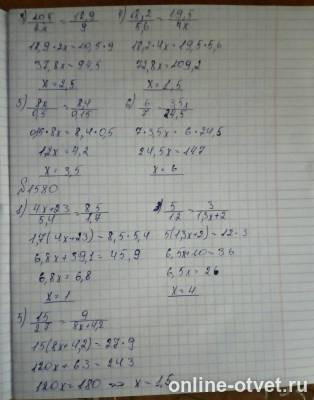 3) 10,5/2x = 18,9/9   4) 18,2/5,6 = 19,5/4x
18,9·2x = 10,5·9   18,2·4x = 19,5·5,6
37,8x = 94,5   72,8x = 109,2
x = 2,5   x = 1,5
5) 8x/0,5 = 8,4/0,15   6) 6/7 = 3,5x/24,5
0,15·8x = 8,4·0,5   7·3,5x = 6·24,5
12x = 4,2   24,5x = 147
x = 3,5   x = 6
№1580
1) 4x+23/5,4 = 8,5/1,7   5/12 = 3/1,3x+2
1,7(4x+23) = 8,5·5,4   5(1,3x+2) = 12·3
6,8x + 39,1 = 45,9   6,5x+10 = 36
6,8x = 6,8   6,5x = 26
x = 1   x = 4
3) 15/27 = 9/8x+4,2
15(8x+4,2) = 27·9
120x + 63 = 243
120x = 180 => x = 1,5
online-otvet.ru